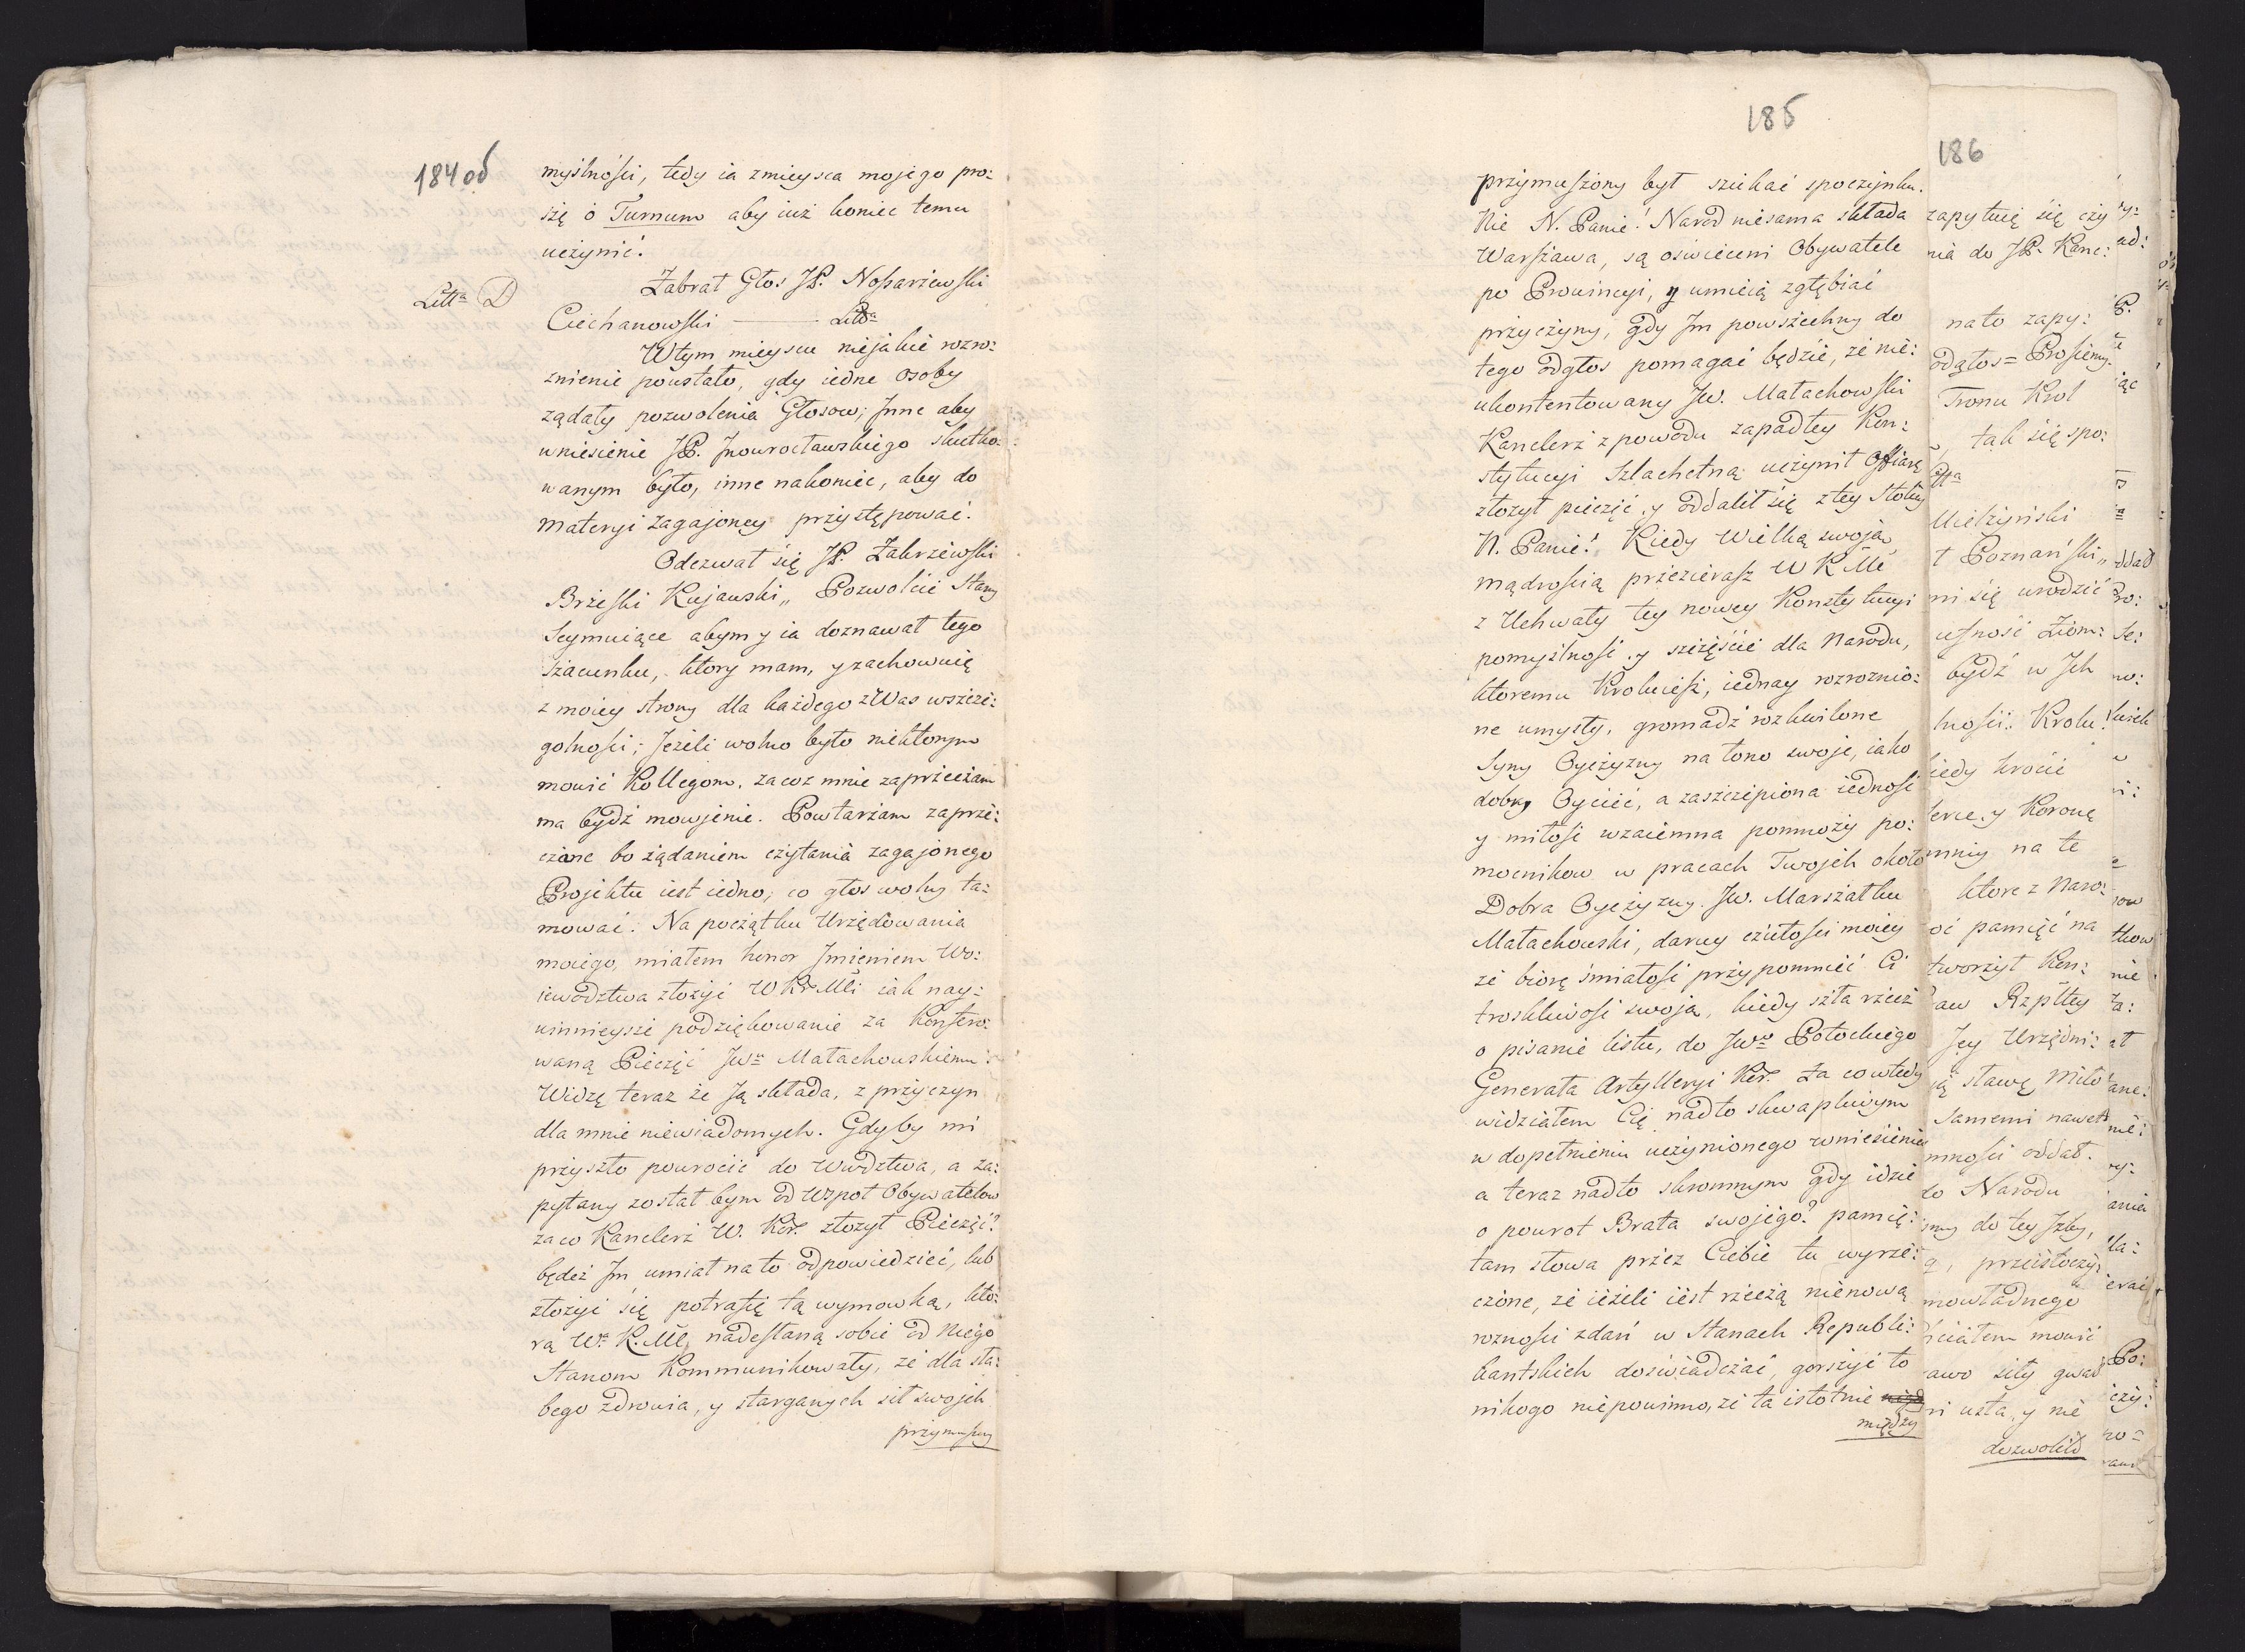 184 od
myślności, tedy ia zmieysca mojego pro:
szę o Turnum aby iuż koniec temu
uczynić.
Zabrał Głos JP. Nosarzewski
Litt<sup>a</sup> D
Ciechanowski ——— Litt<sup>a</sup>
Wtym mieyscu niejakie rozro:
znienie powstało, gdy iedne osoby
ządały pozwolenia Głosow; Inne aby
wniesienie JP. Inowrocławskiego skutko:
wanym było, inne nakoniec, aby do
materyi zagajoney przystępować.
Odezwał się JP. Zakrzewski
Brzeski Kujawski„ Pozwolcie Stany
Seymuiące abym y ia doznawał tego
szacunku, ktory mam, y zachowuię
z moiey strony dla każdego z Was wszcze:
golności; Jeżeli wolno było niektorym
mowić Kollegom, zacoz mnie zaprzeczam
ma bydź mowjenie. Powtarzam zaprze:
czone bo żądaniem czytania zagajonego
Projektu iest iedno, co głos wolny ta:
mować. Na początku Urzędowania
moiego, miałem honor Imieniem Wo:
iewodztwa złożyć WKMci iak nay:
winnieysze podziękowanie za Konfero:
waną Pieczęć Jw<sup>u</sup> Małachowskiemu.
Widzę teraz że Ją składa, z przyczyn
dla mnie niewiadomych. Gdyby mi
przyszło powrocić do Wwdztwa, a za:
pytany został bym od Wspoł Obywatelow
zaco Kanclerz W. Kor. złożył Pieczęć?
będeż Im umiał na to odpowiedzieć, lub
złożyć się potrafię tą wymowką, kto:
rą W. K. Mć nadesłaną sobie od niego
Stanom Kommunikowały, że dla sła:
bego zdrowia, y starganych sił swojch
przymuszny
185
przymuszony był szukać spoczynku.
Nie N. Panie! Narod niesama składa
Warszawa, są oświeceni Obywatele
po Prowincyi, y umieią zgłębiać
przyczyny, gdy Im powszechny do
tego odgłos pomagać będzie, że nie:
ukontentowany Jw. Małachowski
Kanclerz z powodu zapadłey Kon:
stytucyi Szlachetną uczynił Offiarę
złożył pieczęć y oddalił się z tey Stolicy
N. Panie! Kiedy Wielką swoją
mądrością przezierasz W K Mć
z Uchwały tey nowey Konstytucyi
pomyślność y szczęście dla Narodu,
ktoremu Krolujesz, iednay rozroznio:
ne umysły, gromadź rozkwilone
Syny Oyczyzny na łono swoje, iako
dobry Oyciec, a zaszczepiona iedność
y miłość wzaiemna pomnoży po:
mocnikow w pracach Twojch około
Dobra Oyczyzny. Jw. Marszałku
Małachowski, daruy czułości moiey
że biorę śmiałość przypomnieć Ci
troskliwość swoją, kiedy szła rzecz
o pisanie listu, do Jw<sup>o</sup> Potockiego
Generała Artylleryi Kor. Za co wtedy
widziałem Cię nadto skwapliwym
w dopełnieniu uczynionego wniesienia
a teraz nadto skromnym gdy idzie
o powrot Brata swojego? pamię:
tam słowa przez Ciebie tu wyrze:
czone, że ieżeli iest rzeczą nienową
rozności zdań w Stanach Republi:
kantskich doświadczać, gorszyć to
nikogo niepowinno, że ta istotnie
między
186
zapytuię się czy
nia do JP. Kanc:
na to zapy:
odgłos= Prosiemy.
Tronu Krol
tak się spo:
Mielżyński
t Poznański„
ni się urodzić
ufność Ziom:
bydź w Ich
lności. Krolu!
iedy krocie
erce y Koronę
mniy na te
ktore z Naro:
oć pamięć na
tworzył Kon:
aw Rzpltey
Jey Urzędni:
ią sławę, Miło
samemi nawet
mności oddał.
o Narodu
my do tey Izby,
przeistoczy:
mowładnego
hciałem mowić
awo siły gwał
ni usta, y nie
dozwolił